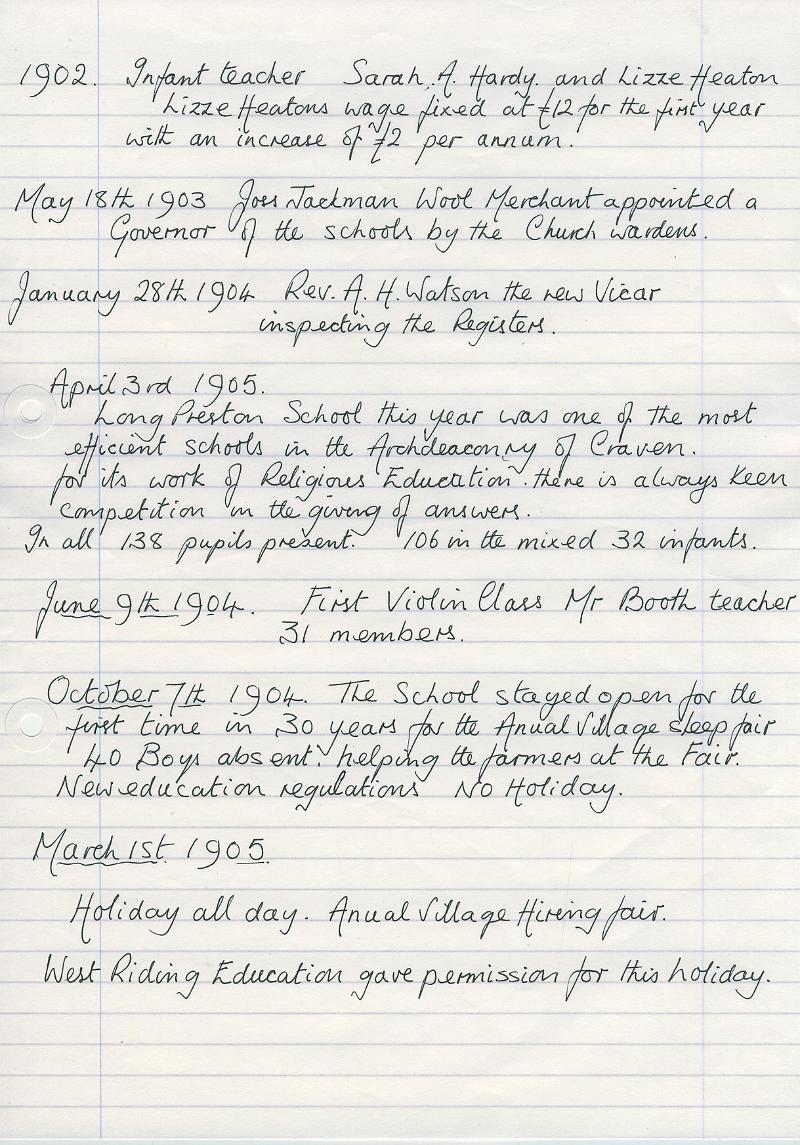 1902. Infant teacher Sarah. A. Hardy. and Lizze Heaton
Lizze Heatons wage fixed at £12 for the first year
with an increase of £2 per annum.
May 18th 1903 Joss Jackman Wool Merchant appointed a
Governor of the schools by the Church wardens.
January 28th 1904 Rev. A. H. Watson the new Vicar
inspecting the Registers.
April 3rd 1905.
Long Preston School this year was one of the most
efficient schools in the Archdeaconry of Craven.
for its work of Religious Education. there is always keen
competition in the giving of answers.
In all 138 pupils present. 106 in the mixed 32 infants.
June 9th 1904. First Violin Class Mr Booth teacher
31 members.
October 7th 1904. The School stayed open for the
first time in 30 years for the Anual Village sleep fair
40 Boys absent. helping the farmers at the Fair.
New education regulations No Holiday.
March 1st 1905.
Holiday all day. Anual Village Hiring fair.
West Riding Education gave permission for this holiday.